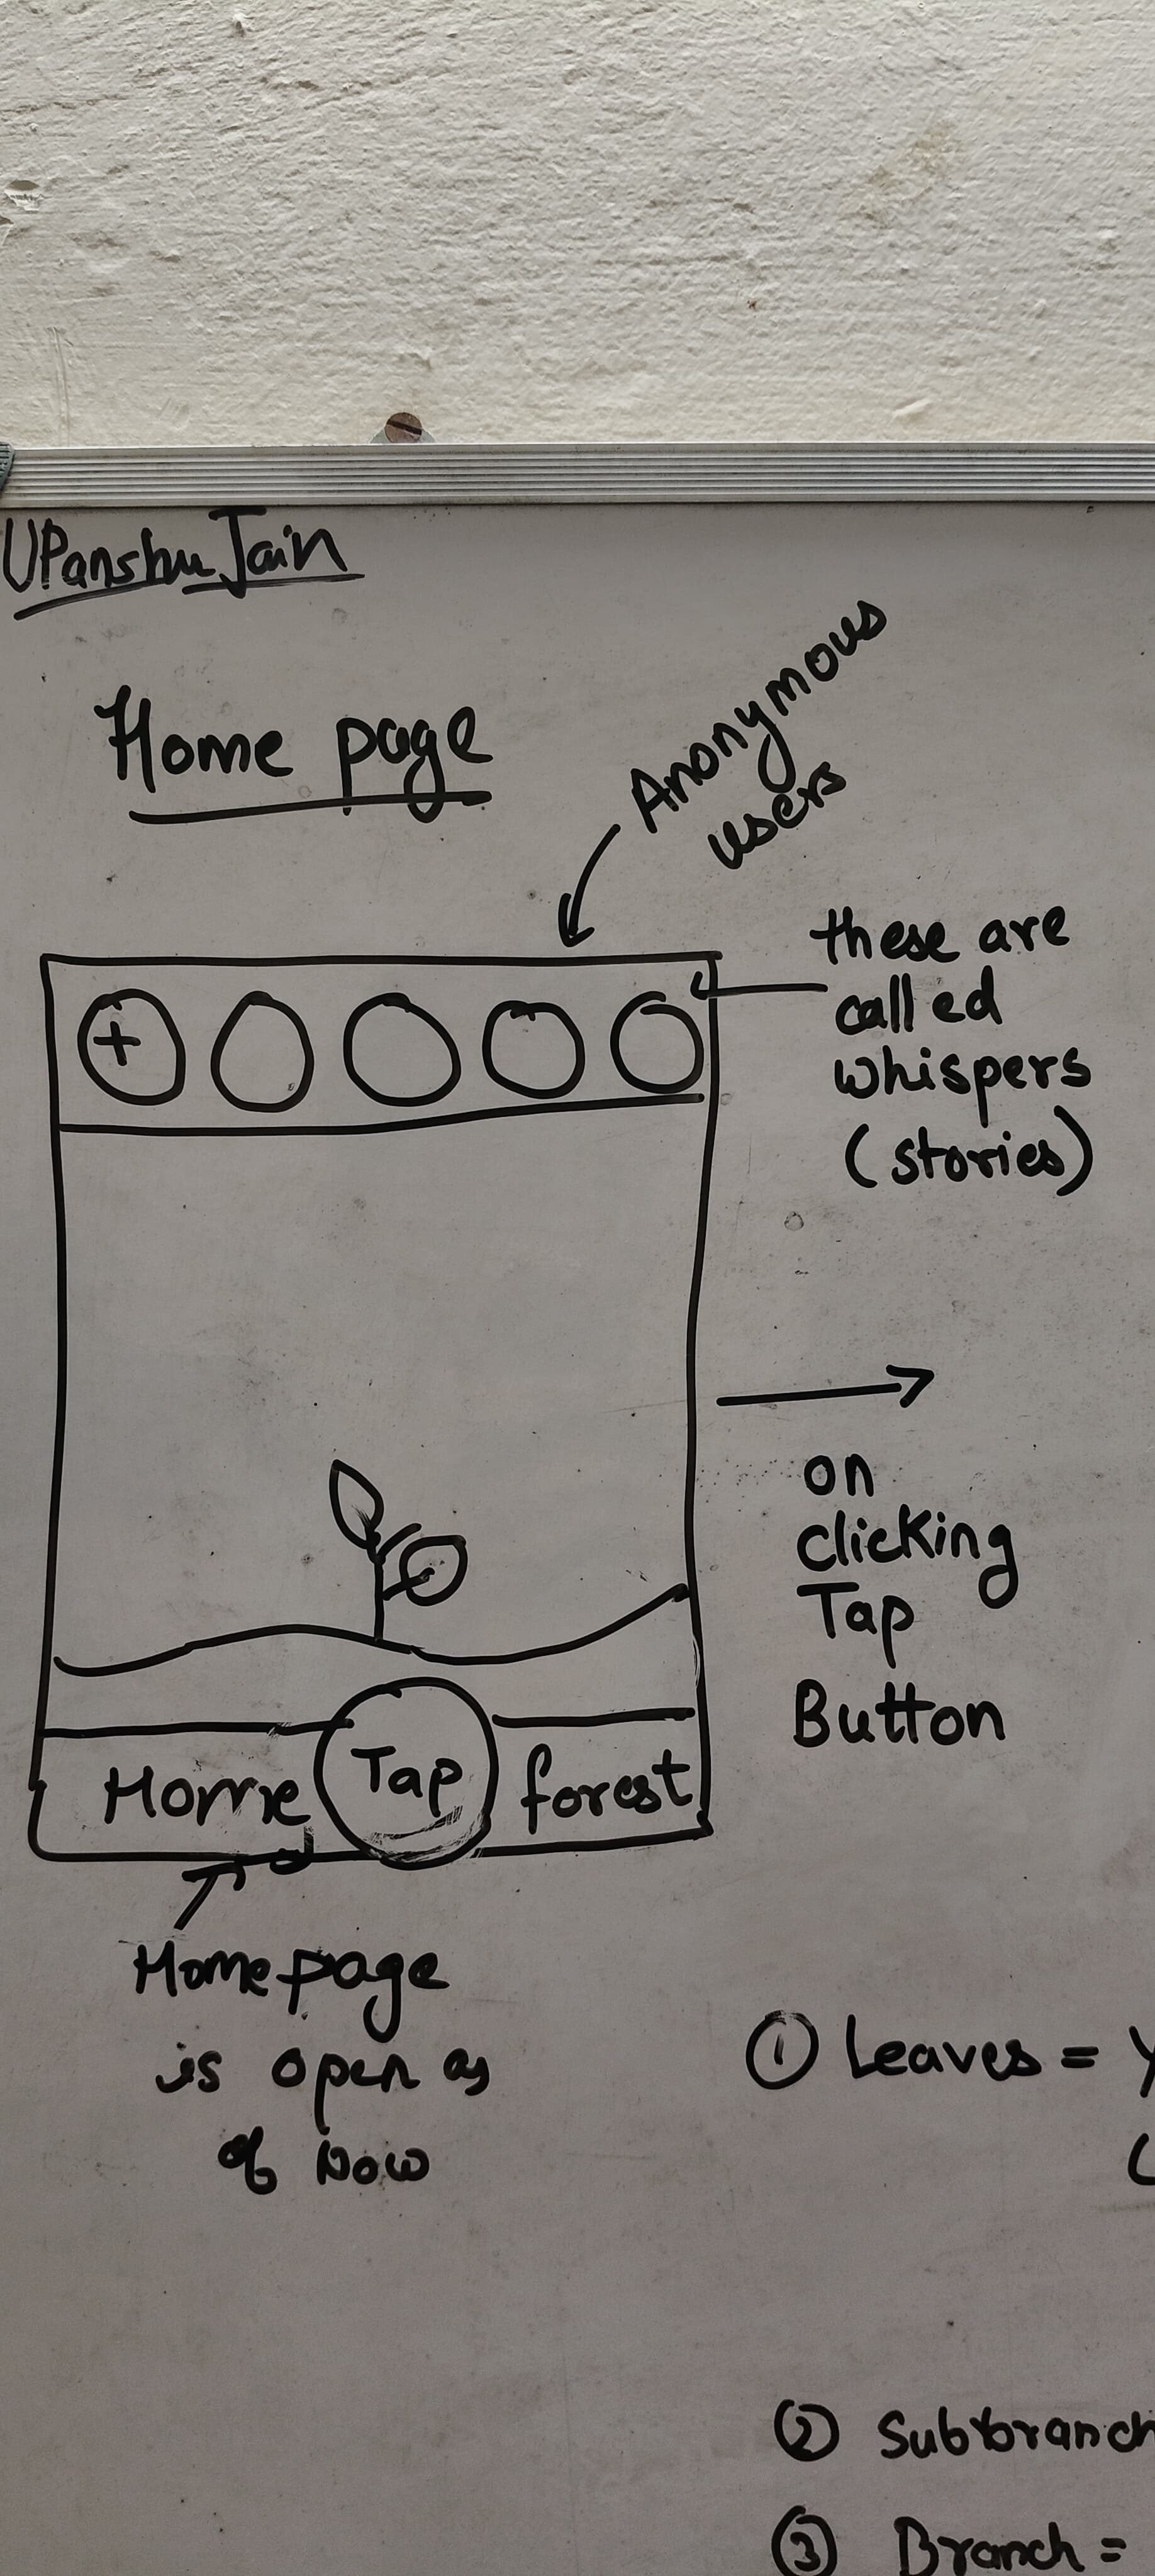 UPanshu Jain
Home page
Anonymous
users
these are
called
whispers
(stories)
+
on
clicking
Tap
Button
Home
Tap
forest
Homepage
is open as
of now
① Leaves =
② Subbranch
③ Branch =